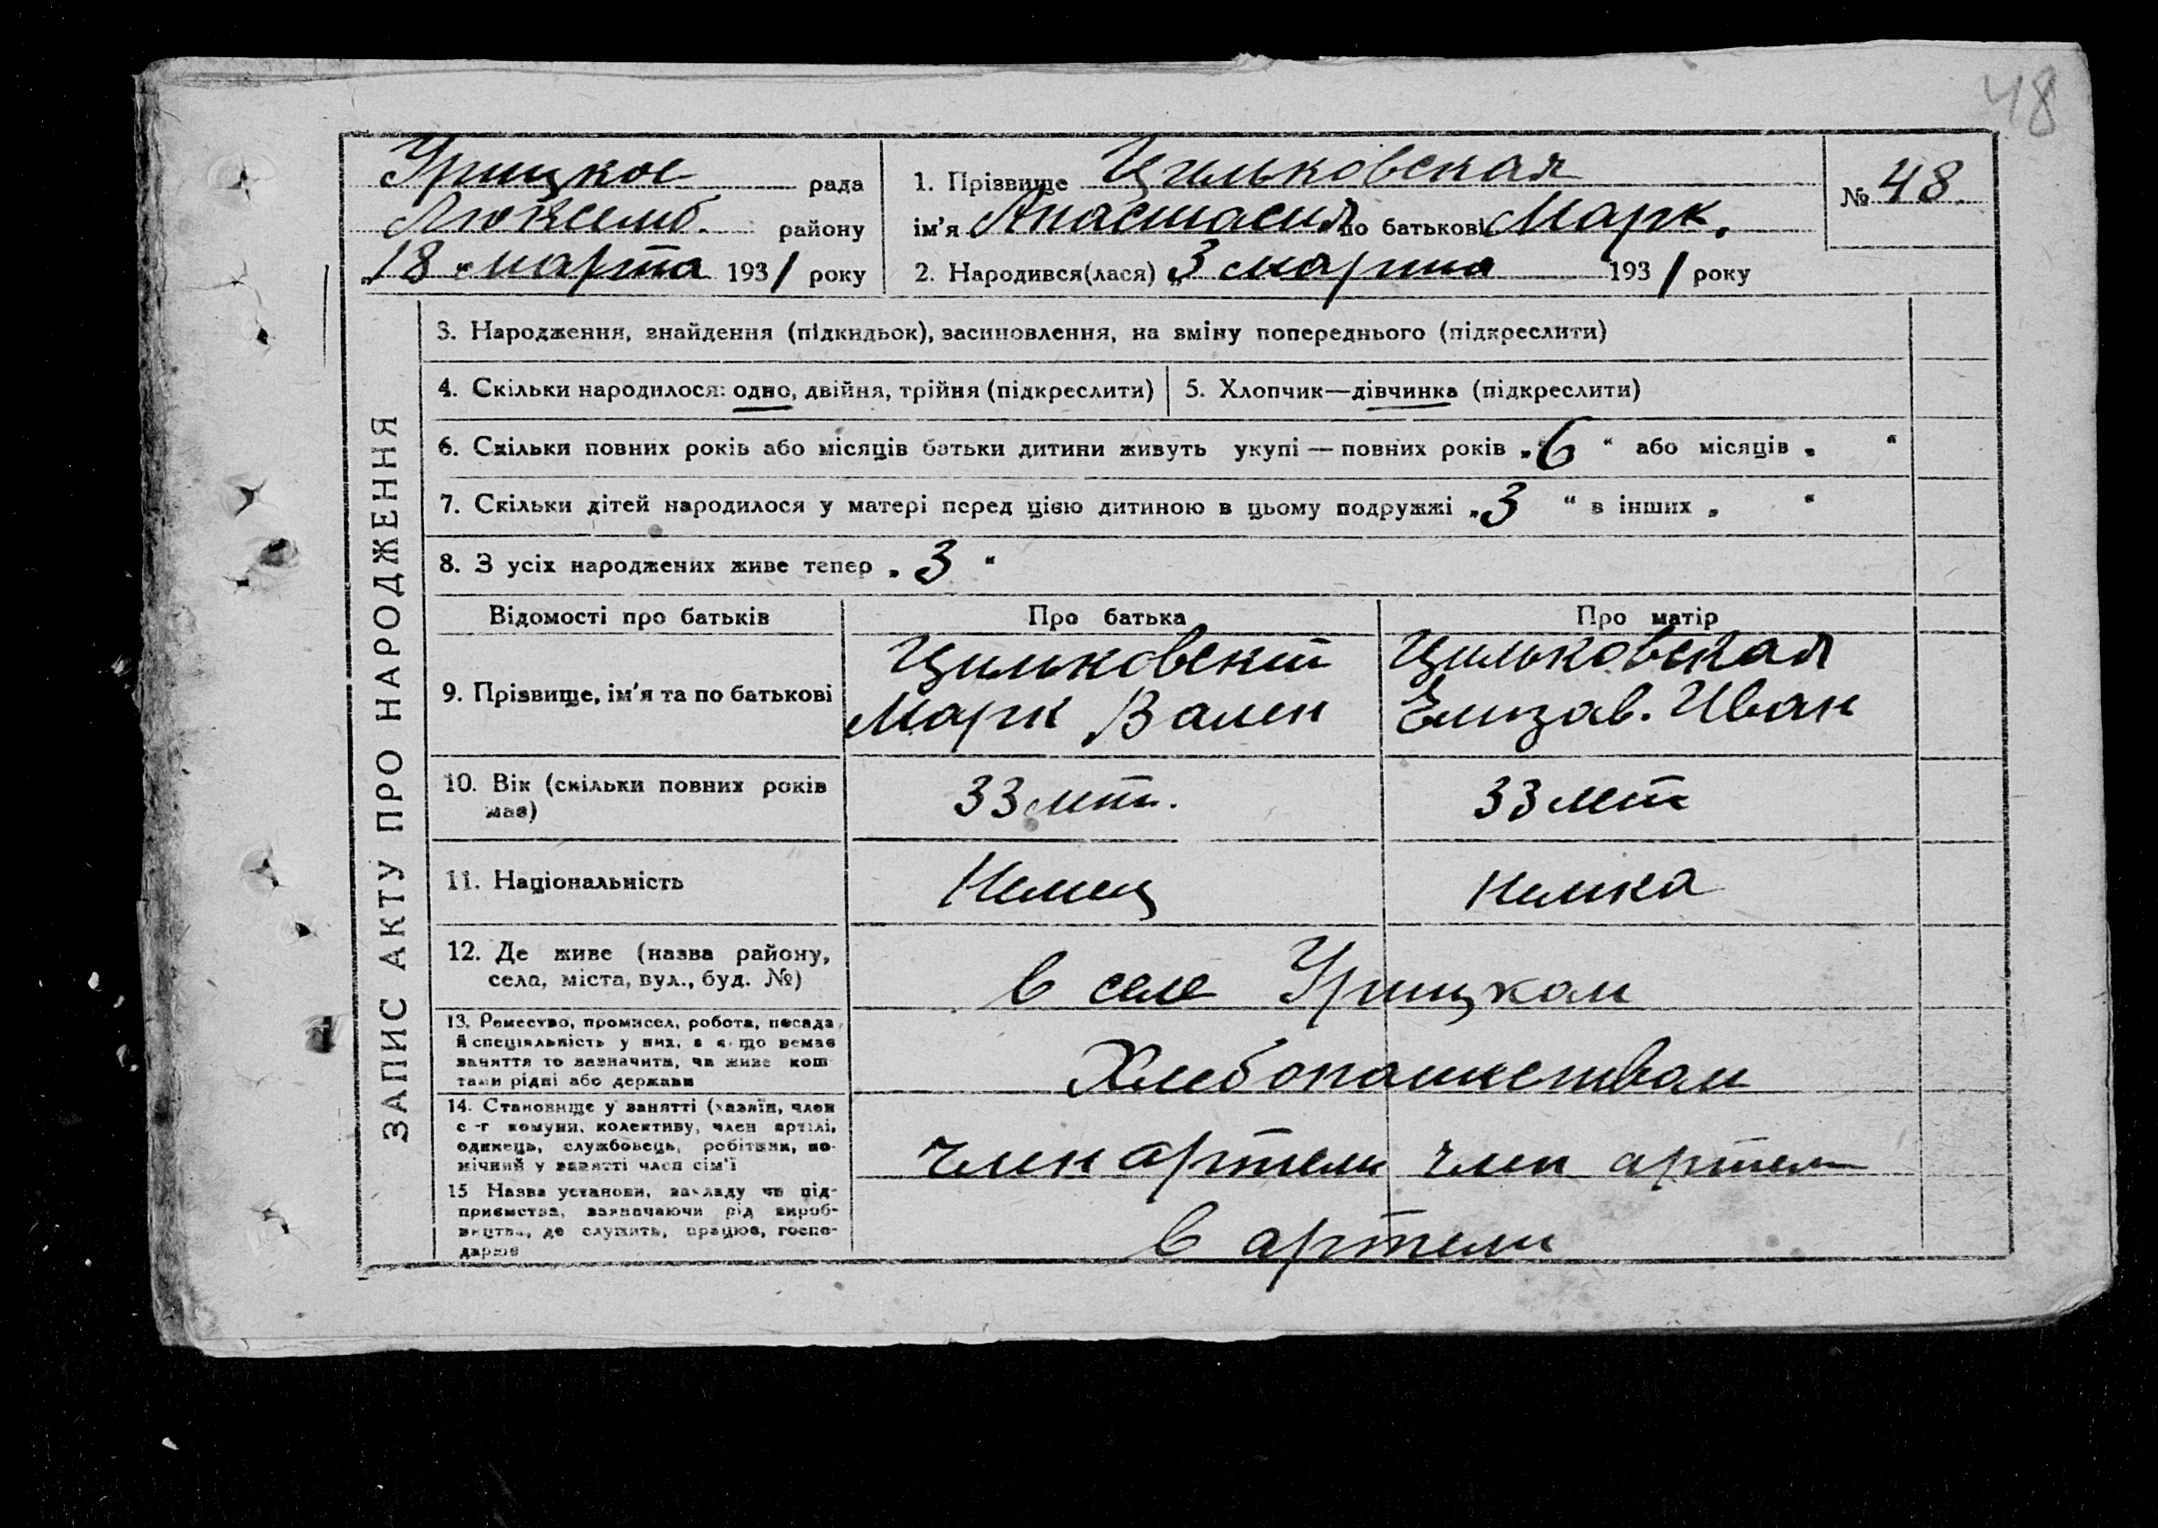 48
Урицкое рада
Люксемб. району
„18 " марта 1931 року
1. Прізвище Цильковская
ім'я Анастасия по батькові Марк.
2. Народився(лася) „3 марта 1931 року
№ 48.
ЗАПИС АКТУ ПРО НАРОДЖЕННЯ
3. Народження, знайдення (підкидьок), засиновлення, на зміну попереднього (підкреслити)
4. Скільки народилося: одно, двійня, трійня (підкреслити)
5. Хлопчик—дівчинка (підкреслити)
6. Скільки повних років або місяців батьки дитини живуть укупі — повних років „6 “ або місяців „ “
7. Скільки дітей народилося у матері перед цією дитиною в цьому подружжі „3 “ в інших „ “
8. З усіх народжених живе тепер „3“
Відомості про батьків Про батька Про матір
9. Прізвище, ім'я та по батькові
Цильковский
Марк Вален
Цильковская
Елизав. Иван
10. Вік (скільки повних років
має)
33 лет.
33 лет
11. Національність
Немец
немка
12. Де живе (назва району,
села, міста, вул., буд. №)
в селе Урицком
13. Ремество, промисел, робота, посада
й спеціяльність у них, а якщо немає
заняття то зазначити, чи живе кош
тами рідні або держави
Хлебопашеством
14. Становище у занятті (хазяїн, член
с-г комуни, колективу, член артілі,
одинець, службовець, робітник, по-
мічний у занятті член сім'ї
член артели член артели
15 Назва установи, закладу чи під-
приємства, зазначаючи рід вироб-
ництва, де служить, працює, госпо-
дарює
в артели